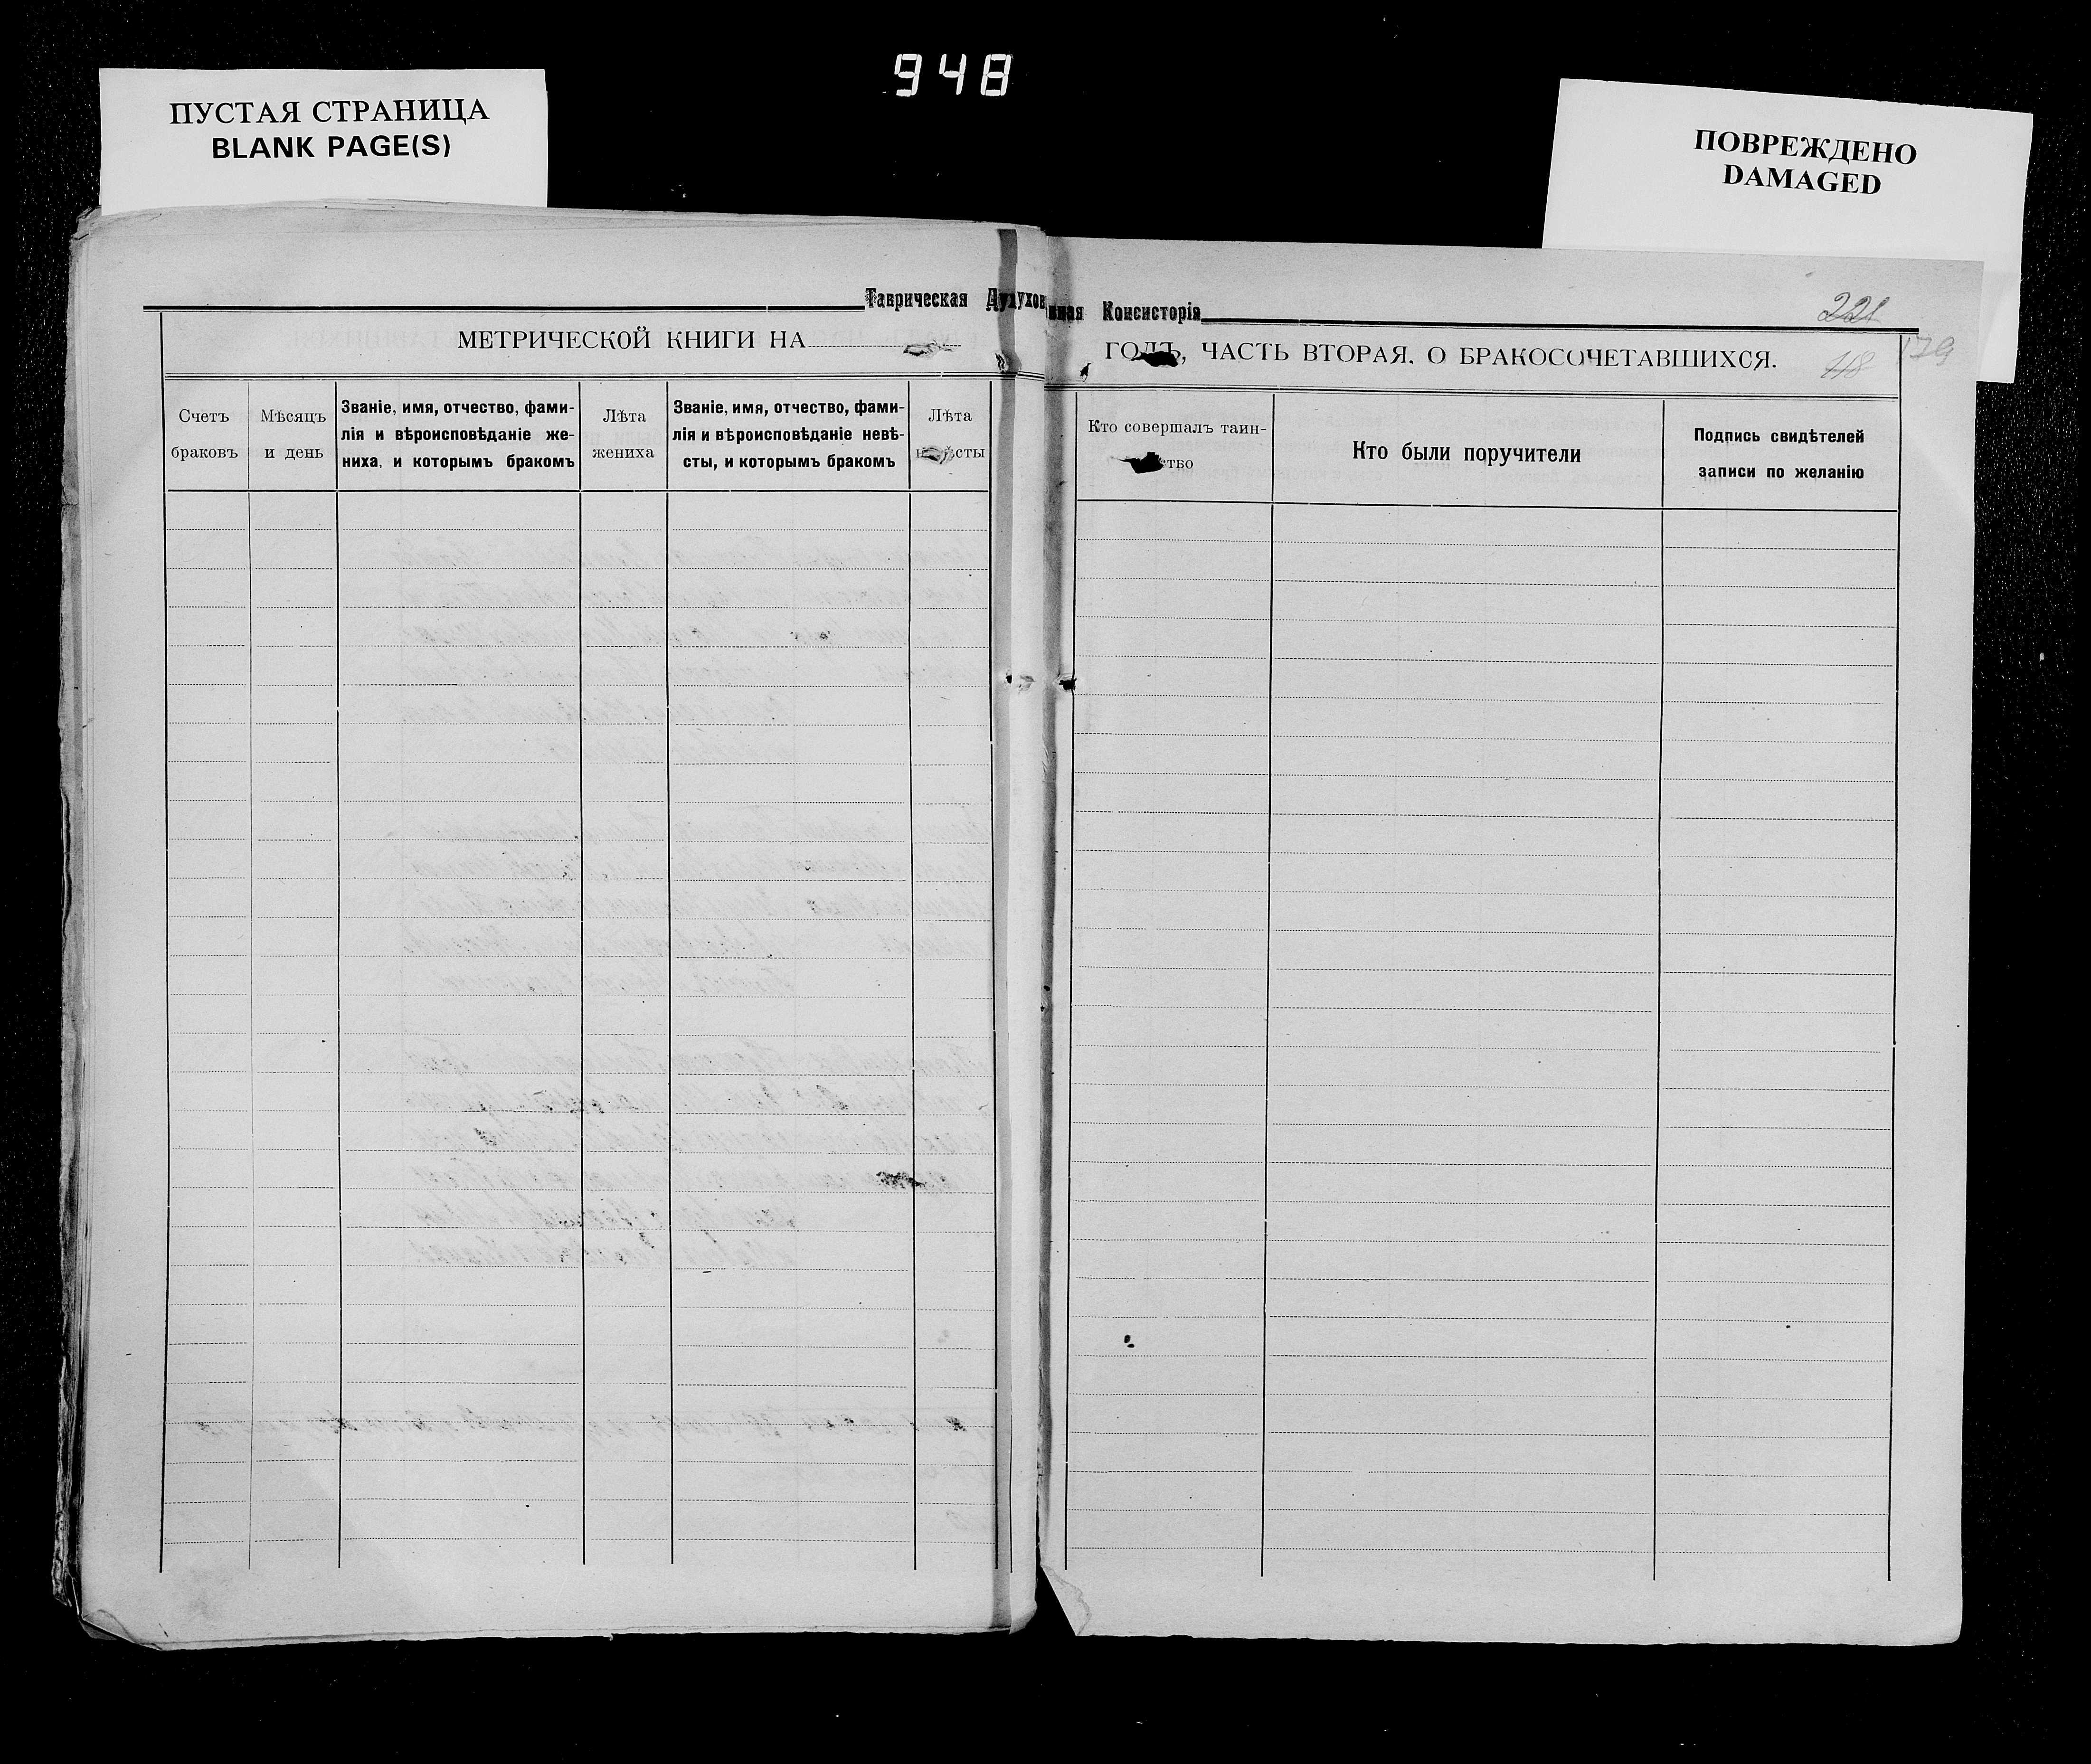 948
ПУСТАЯ СТРАНИЦА
BLANK PAGE(S)
ПОВРЕЖДЕНО
DAMAGED
Таврическая Духовная Консисторія
221
МЕТРИЧЕСКОЙ КНИГИ НА ГОДЪ, ЧАСТЬ ВТОРАЯ, О БРАКОСОЧЕТАВШИХСЯ.
118
179
Счетъ
браковъ
Мѣсяцъ
и день
Званіе, имя, отчество, фами-
лія и вѣроисповѣданіе же-
ниха, и которымъ бракомъ
Лѣта
жениха
Званіе, имя, отчество, фами-
лія и вѣроисповѣданіе невѣ-
сты, и которымъ бракомъ
Лѣта
невѣсты
Кто совершалъ таин-
ство
Кто были поручители
Подпись свидѣтелей
записи по желанію